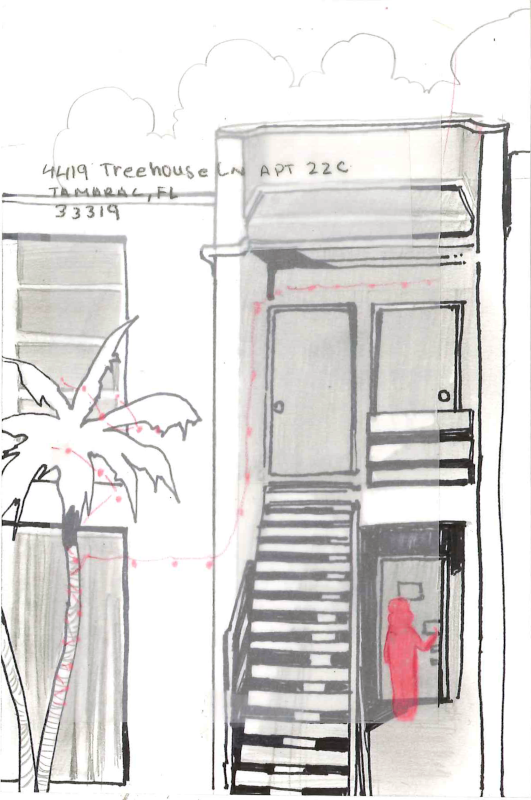 4419 Treehouse LN APT 22C
TAMARAC, FL
33319